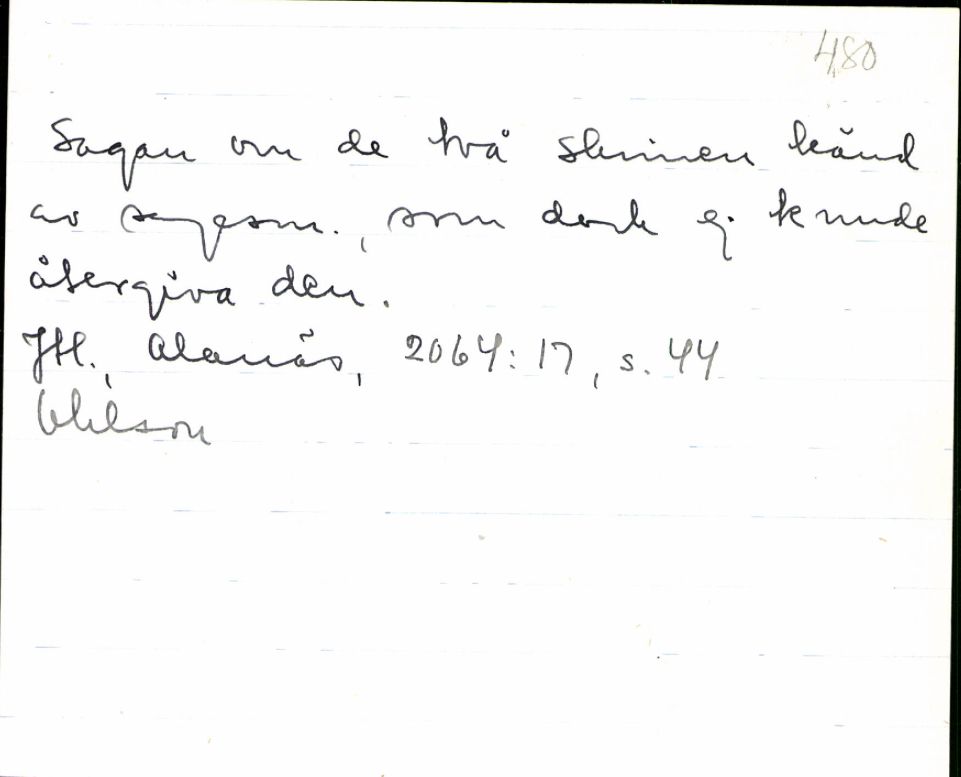 480
Sagan om de två skrinen känd
av sagesm., som dock ej kunde
återgiva den.
Jtl., Alanäs, 2064:17, s. 44
Ohlson